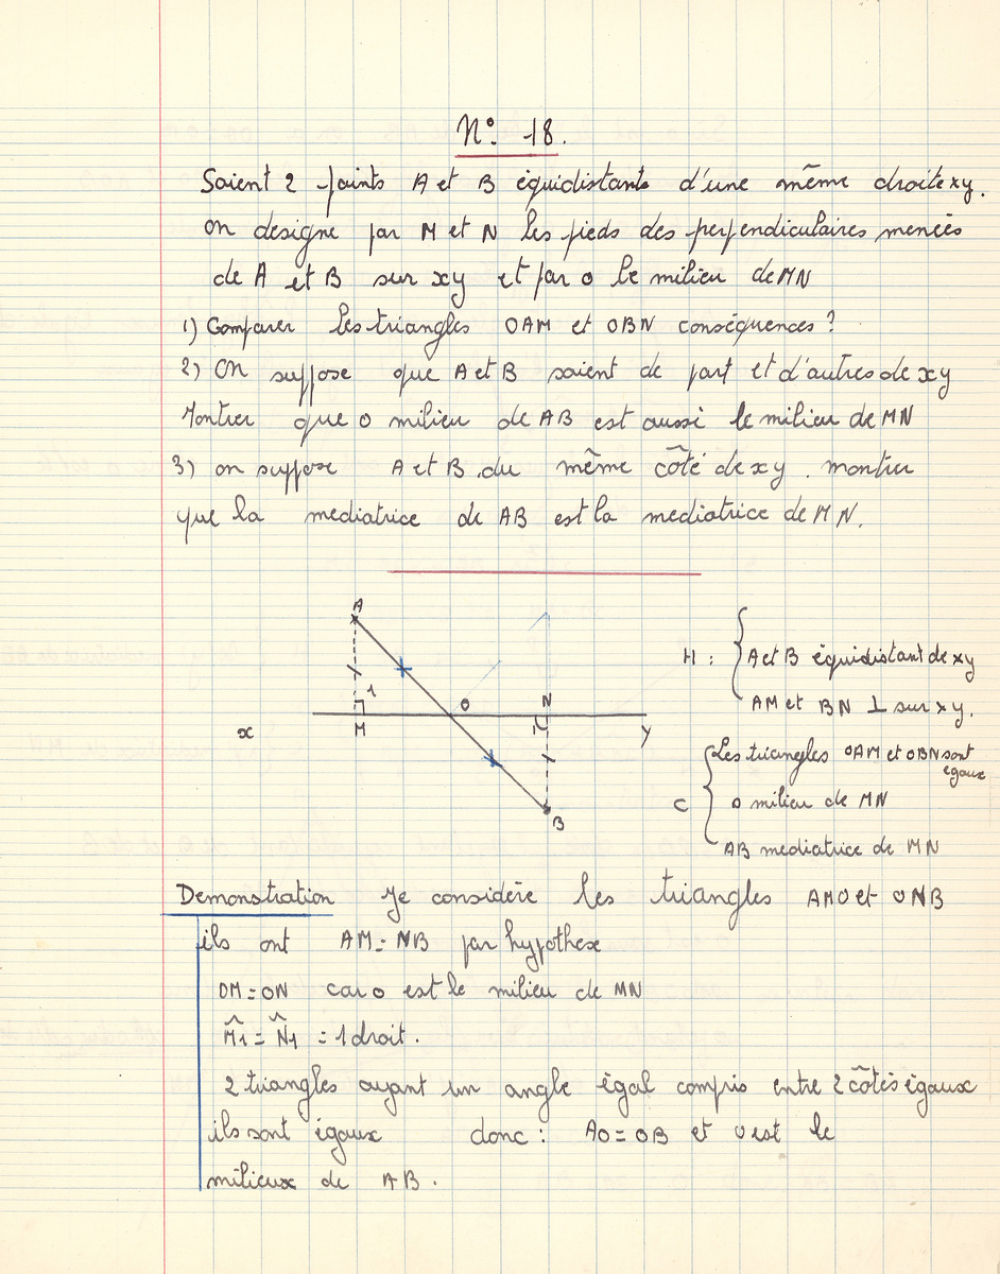 N° 18.
Soient 2 points A et B équidistants d'une même droite xy.
on designe par M et N les pieds des perpendiculaires menées
de A et B sur xy et par O le milieu de MN
1) Comparer les triangles OAM et OBN conséquences ?
2) On suppose que A et B soient de part et d'autres de xy
Montrer que O milieu de AB est aussi le milieu de MN
3) on suppose A et B du même côté de xy. montrer
que la mediatrice de AB est la mediatrice de MN.
A
1
O
N
x
M
1
y
B
H : { A et B équidistant de xy
AM et BN ⊥ sur xy.
C { Les triangles OAM et OBN sont
égaux
O milieu de MN
AB mediatrice de MN
Demonstration Je considère les triangles AMO et ONB
ils ont AM = NB par hypothese
OM = ON car O est le milieu de MN
M̂1 = N̂1 = 1 droit.
2 triangles ayant un angle égal compris entre 2 côtés égaux
ils sont égaux donc : AO = OB et O est le
milieux de AB.